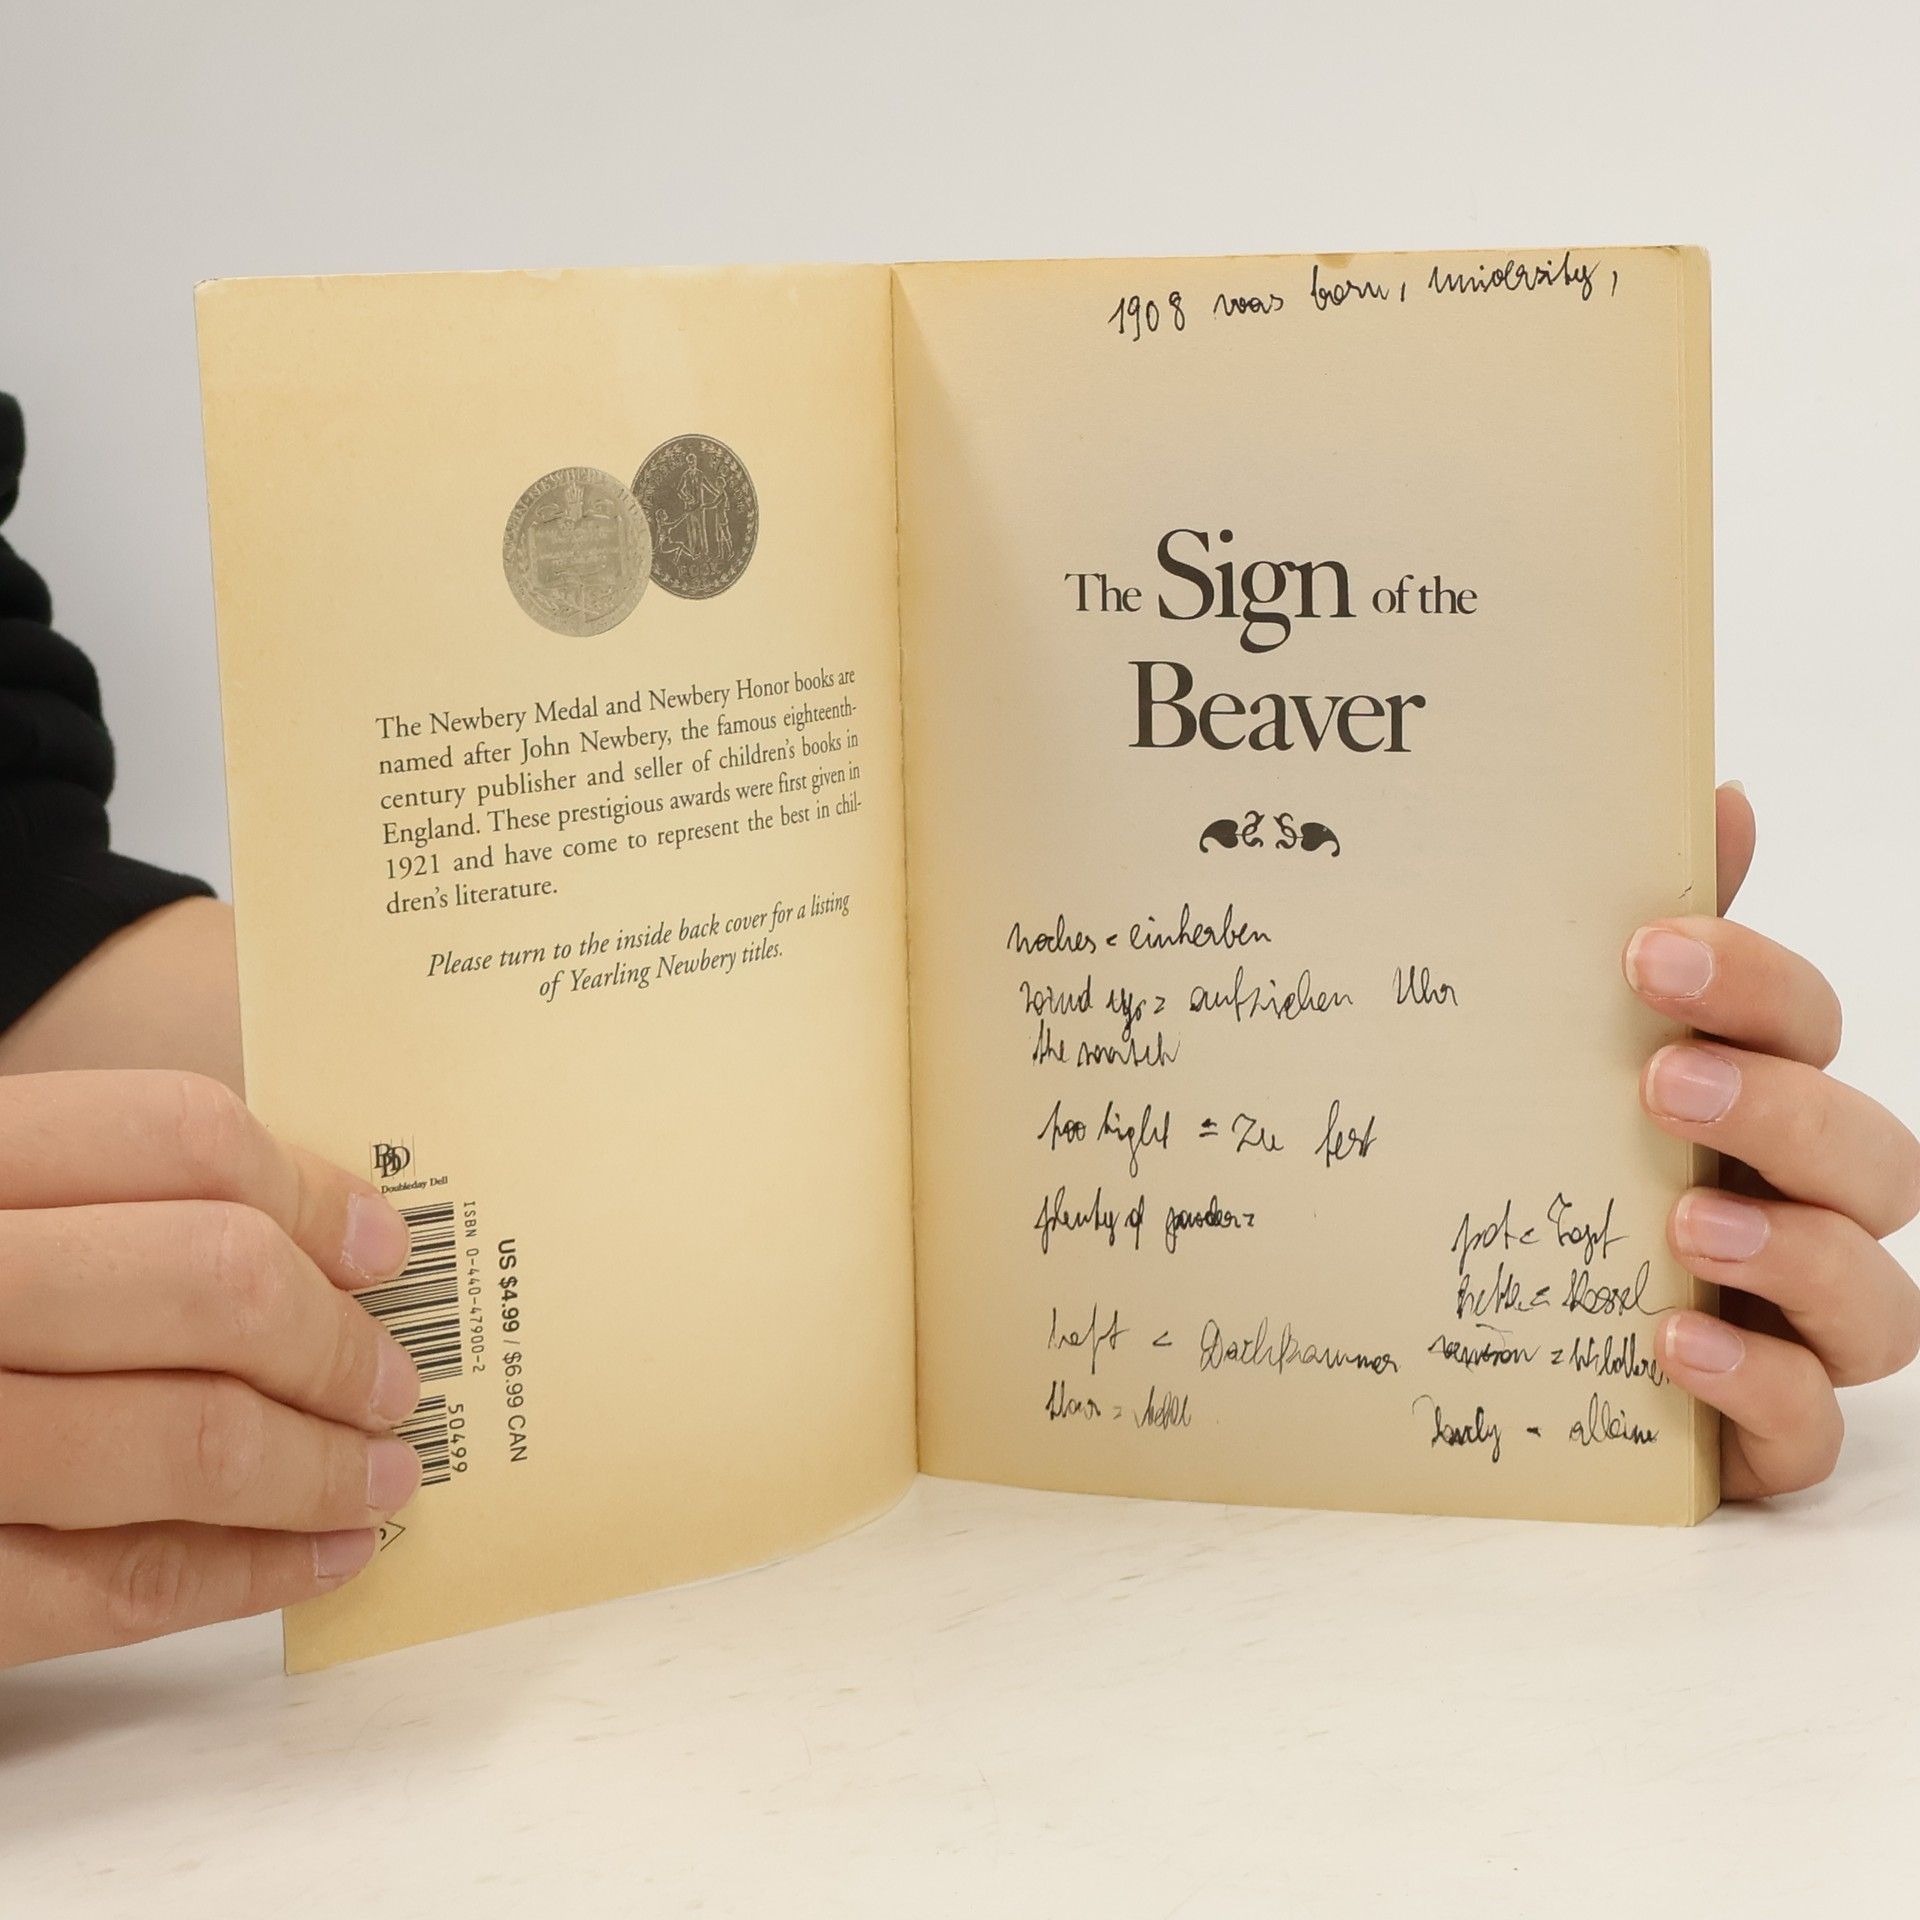 The Newbery Medal and Newbery Honor books are
named after John Newbery, the famous eighteenth-
century publisher and seller of children's books in
England. These prestigious awards were first given in
1921 and have come to represent the best in chil-
dren's literature.
Please turn to the inside back cover for a listing
of Yearling Newbery titles.
BDD
Doubleday Dell
ISBN 0-440-47900-2
50499
US $4.99 / $6.99 CAN
1908 was born, university,
The Sign of the
Beaver
einkerben
wind up = aufziehen Uhr
the watch
too tight = zu fest
plenty of powder =
pot = Topf
kettle = Kessel
loft = Dachkammer
alleine